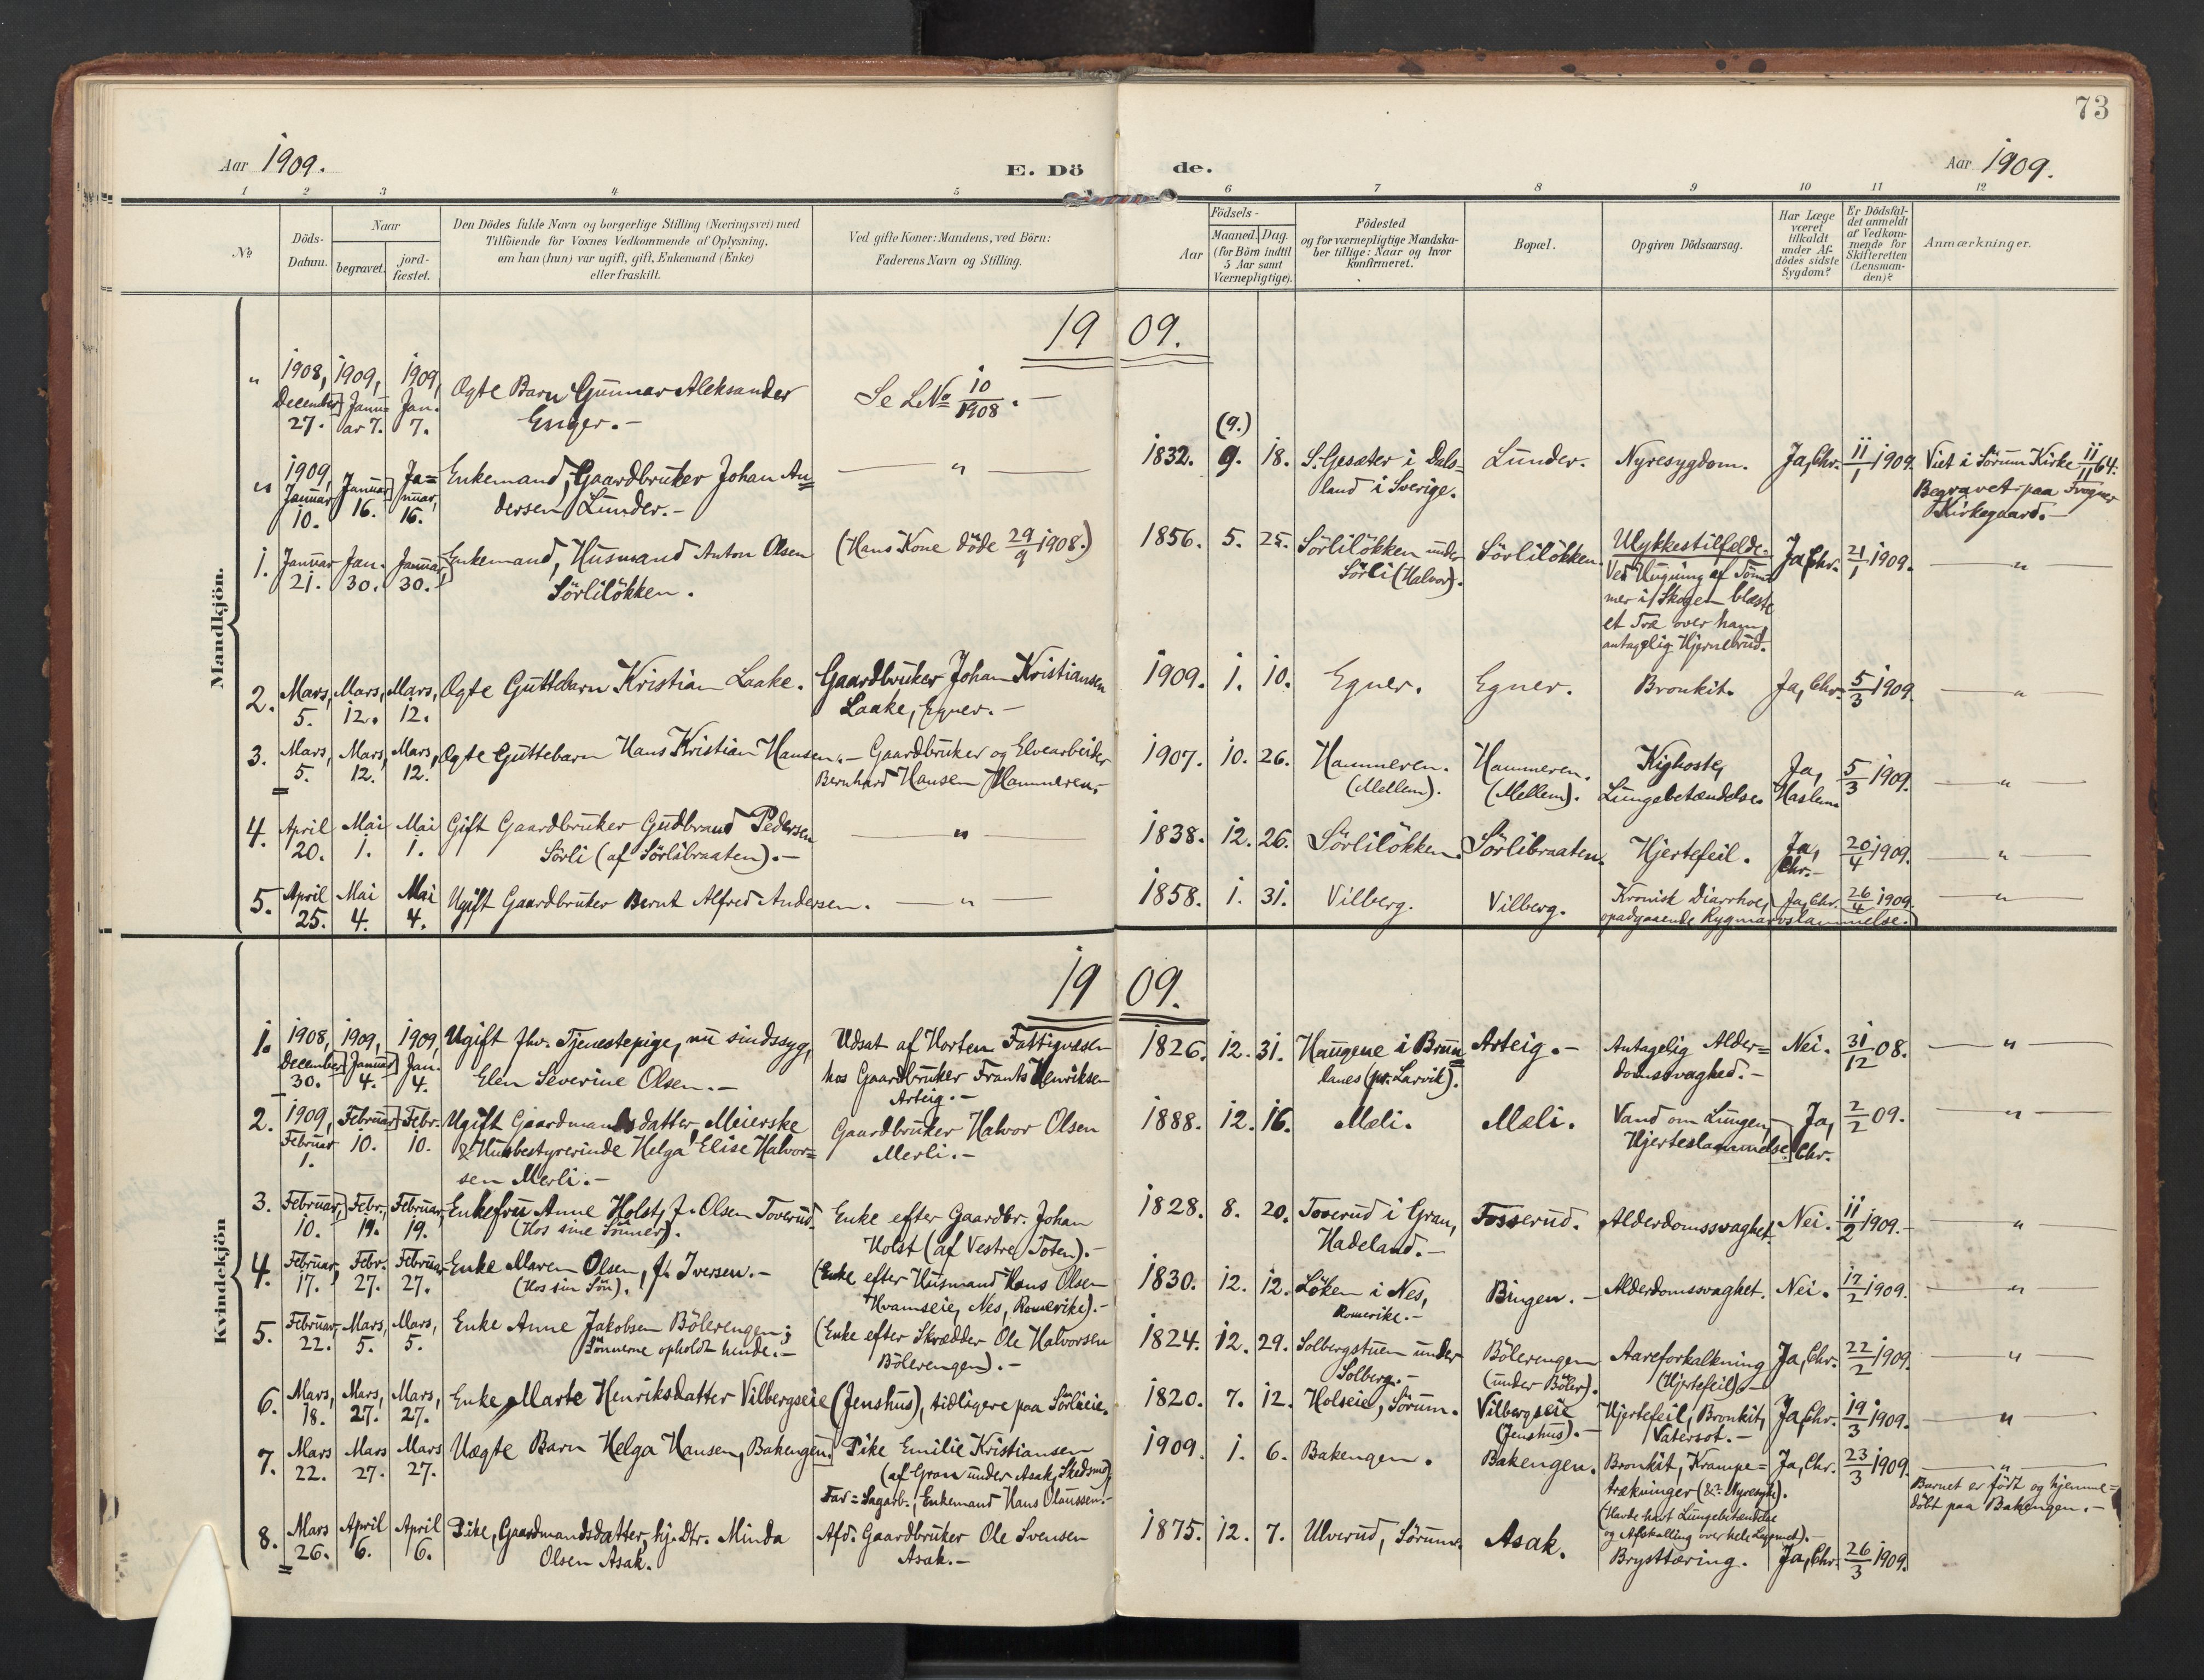 73
Aar 1909.
E. Dö de.
Aar 1909.
1 2 3 4 5 6 7 8 9 10 11 12
No.
Döds-
Datum.
Naar
begravet.
jord-
fæstet.
Den Dödes fulde Navn og borgerlige Stilling (Næringsvei) med
Tilföiende for Voxnes Vedkommende af Oplysning,
om han (hun) var ugift, gift, Enkemand (Enke)
eller fraskilt.
Ved gifte Koner: Mandens, ved Börn:
Faderens Navn og Stilling.
Födsels-
Aar
Maaned. Dag.
(for Börn indtil
5 Aar samt
Værnepligtige).
Födested
og for værnepligtige Mandska-
ber tillige: Naar og hvor
konfirmeret.
Bopæl.
Opgiven Dödsaarsag.
Har Læge
været
tilkaldt
under Af-
dödes sidste
Sygdom?
Er Dödsfal-
det anmeldt
af Vedkom-
mende for
Skifteretten
(Lensman-
den)?
Anmærkninger.
Mandkjön.
19 09.
" 1908, December 27. 1909, Janu= ar 7. 1909, Jan. 7. Ægte Barn Gunnar Aleksander
Enger.-
Se LNo 10/1908.-
" 1909, Januar 10. Januar 16. Ja= nuar, 16. Enkemand, Gaardbruker Johan An=
dersen Lunder.-
" 1832. (9.) 9. 18. S. Gesæter i Dals=
land i Sverige.
Lunder. Nyresygdom. Ja, Chr. 11/1 1909. Viet i Sörum Kirke 11/11 64.
Begravet paa Frogner
Kirkegaard.-
1. Januar 21. Jan. 30. Januar 30. Enkemand, Husmand Anton Olsen
Sörlilökken.
(Hans Kone döde 29/9 1908.) 1856. 5. 25. Sörlilökken under
Sörli (Halvor).
Sörlilökken. Ulykkestilfælde.
Ved Hugning af Töm=
mer i Skogen blæste
et Træ over ham,
antagelig Hjernebrud.
Ja, Chr. 21/1 1909. "
2. Mars, 5. Mars, 12. Mars, 12. Ægte Guttebarn Kristian Laake. Gaardbruker Johan Kristiansen
Laake, Egner.-
1909. 1. 10. Egner. Egner. Bronkit. Ja, Chr. 5/3 1909. "
3. Mars, 5. Mars, 12. Mars, 12. Ægte Guttebarn Hans Kristian Hansen.- Gaardbruker og Elvearbeider
Bernhard Hansen Hammeren.-
1907. 10. 26. Hammeren.
(Mellem).
Hammeren.
(Mellem).
Kighoste,
Lungebetændelse.
Ja,
Haslem
5/3 1909. "
4. April 20. Mai 1. Mai 1. Gift Gaardbruker Gudbrand Pedersen
Sörli (af Sörlibraaten).-
" 1838. 12. 26. Sörlilökken. Sörlibraaten. Hjertefeil. Ja, Chr.- 20/4 1909. "
5. April 25. Mai 4. Mai 4. Ugift Gaardbruker Bernt Alfred Andersen. " 1858. 1. 31. Vilberg. Vilberg. Kronisk Diarrhoe,
opadgaaende Rygmarvslammelse.
Ja, Chr. 26/4 1909. "
Kvindekjön
19 09.
1. 1908, December 30. 1909, Januar 4. 1909, Jan. 4. Ugift fhv. Tjenestepige, nu sindssyg,
Elen Severine Olsen.-
Udsat af Horten Fattigvæsen
hos Gaardbruker Frants Henriksen
Arteig.-
1826. 12. 31. Haugene i Brun=
lanes (pr. Larvik).
Arteig.- Antagelig Alder=
domssvaghed.-
Nei. 31/12 08. "
2. 1909, Februar 1. Februar 10. Febr. 10. Ugift Gaardmandsdatter, Meierske
& Husbestyrerinde Helga Elise Halvor=
sen Merli.-
Gaardbruker Halvor Olsen
Merli.-
1888. 12. 16. Mæli. Mæli. Vand om Lungen,
Hjerteslammelse.
Ja, Chr. 2/2 09. "
3. Februar, 10. Febr., 19. Februar, 19. Enkefru Anne Holst, f. Olsen Toverud.
(Hos sine Sönner).
Enke efter Gaardbr. Johan
Holst (af Vestre Toten).-
1828. 8. 20. Toverud i Gran,
Hadeland.-
Fosserud. Alderdomssvaghet. Nei. 11/2 1909.- "
4. Februar, 17. Febr. 27. Februar 27. Enke Maren Olsen, f. Iversen.-
(Hos sin Sön).
(Enke efter Husmand Hans Olsen
Hvamseie, Nes, Romerike).-
1830. 12. 12. Löken i Nes,
Romerike.-
Bingen.- Alderdomssvaghet. Nei. 17/2 1909. "
5. Februar, 22. Mars, 5. Mars, 5. Enke Anne Jakobsen Bölerengen;
Sönnerne opholdt hende.-
(Enke efter Skrædder Ole Halvorsen
Bölerengen).-
1824. 12. 29. Solbergstuen under
Solberg.-
Bölerengen
(under Böler).
Aareforkalkning
(Hjertefeil).-
Ja, Chr. 22/2 1909. "
6. Mars, 18. Mars, 27. Mars, 27. Enke Marte Henriksdatter Vilbergseie (Jenshus), tidligere paa Sörlieie. 1820. 7. 12. Holseie, Sörum. Vilbergseie
(Jenshus).-
Hjertefeil, Bronkit,
Vatersot.-
Ja, Chr. 19/3 1909. "
7. Mars 22. Mars 27. Mars 27. Uægte Barn Helga Hansen, Bakengen. Pike Emilie Kristiansen
(af Gran under Asak, Skedsmo),
Far = Sagarb., Enkemand Hans Olaussen.-
1909. 1. 6. Bakengen. Bakengen. Bronkit, Krampe=
trækninger (& Nyresyk).
(Havde havt Lungebetændelse
og Afskalling over hele Legemet).-
Ja, Chr. 23/3 1909. "
Barnet er födt og hjemme=
döbt paa Bakengen.-
8. Mars 26. April 6. April 6. Pike, Gaardmandsdatter, hj. Dtr. Minda
Olsen Asak.
Afd. Gaardbruker Ole Svensen
Asak.-
1875. 12. 7. Ulverud, Sörum. Asak. Brysttæring. Ja, Chr. 26/3 1909.